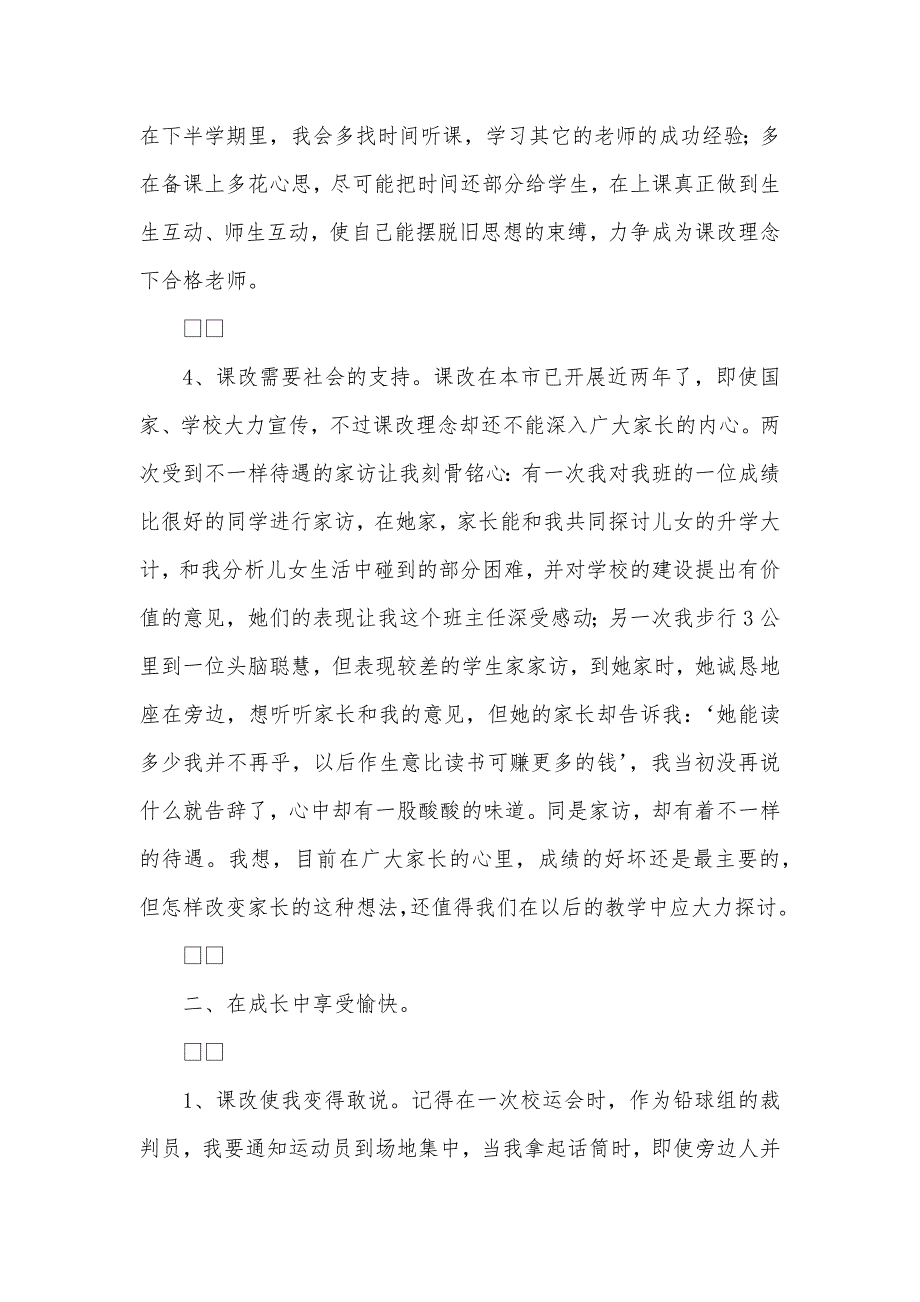 在下半学期里，我会多找时间听课，学习其它的老师的成功经验；多
在备课上多花心思，尽可能把时间还部分给学生，在上课真正做到生
生互动、师生互动，使自己能摆脱旧思想的束缚，力争成为课改理念
下合格老师。
□□
4、课改需要社会的支持。课改在本市已开展近两年了，即使国
家、学校大力宣传，不过课改理念却还不能深入广大家长的内心。两
次受到不一样待遇的家访让我刻骨铭心：有一次我对我班的一位成绩
比很好的同学进行家访，在她家，家长能和我共同探讨儿女的升学大
计，和我分析儿女生活中碰到的部分困难，并对学校的建设提出有价
值的意见，她们的表现让我这个班主任深受感动；另一次我步行 3 公
里到一位头脑聪慧，但表现较差的学生家家访，到她家时，她诚恳地
座在旁边，想听听家长和我的意见，但她的家长却告诉我：‘她能读
多少我并不再乎，以后作生意比读书可赚更多的钱’，我当初没再说
什么就告辞了，心中却有一股酸酸的味道。同是家访，却有着不一样
的待遇。我想，目前在广大家长的心里，成绩的好坏还是最主要的，
但怎样改变家长的这种想法，还值得我们在以后的教学中应大力探讨。
□□
二、在成长中享受愉快。
□□
1、课改使我变得敢说。记得在一次校运会时，作为铅球组的裁
判员，我要通知运动员到场地集中，当我拿起话筒时，即使旁边人并